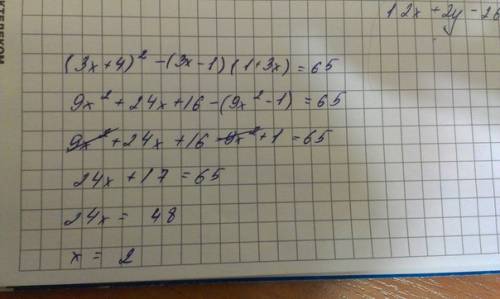 КТЕЛЕКОМ
12x + 2y - 26
(3x+4)² - (3x-1)(1+3x) = 65
9x² + 24x + 16 - (9x² - 1) = 65
9x² + 24x + 16 - 9x² + 1 = 65
24x + 17 = 65
24x = 48
x = 2